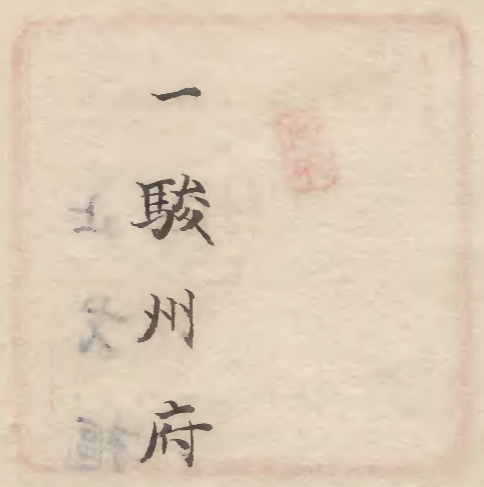 一駿州府